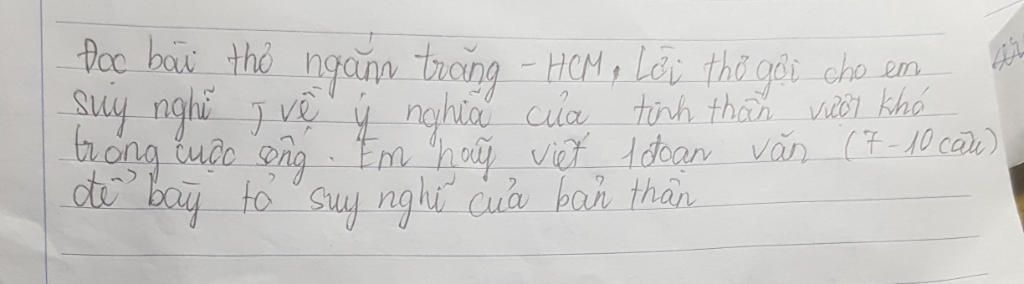 Đọc bài thơ ngắm trăng - HCM, Lời thơ gợi cho em
suy nghĩ J về ý nghĩa của tinh thần vượt khó
trong cuộc sống. Em hãy viết 1 đoạn văn (7-10 câu)
để bày tỏ suy nghĩ của bản thân